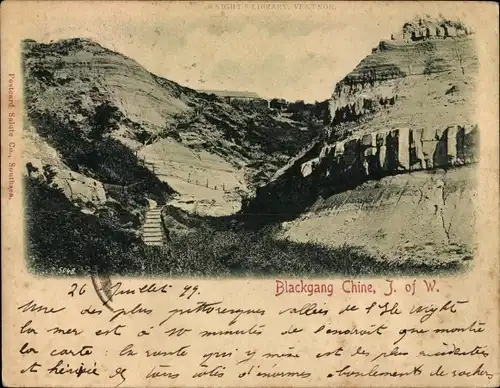 KNIGHT'S LIBRARY, VENTNOR.
Postcard Salute Co., Southsea.
5048
Blackgang Chine, J. of W.
26 Juillet 99.
Une des plus pittoresques vallées de l'Ile Wight
la mer est à minutes de l'endroit que montre
la carte : la route qui y mène est des plus accidentées
et hérissée de tous côtés d'énormes éboulements de rochers